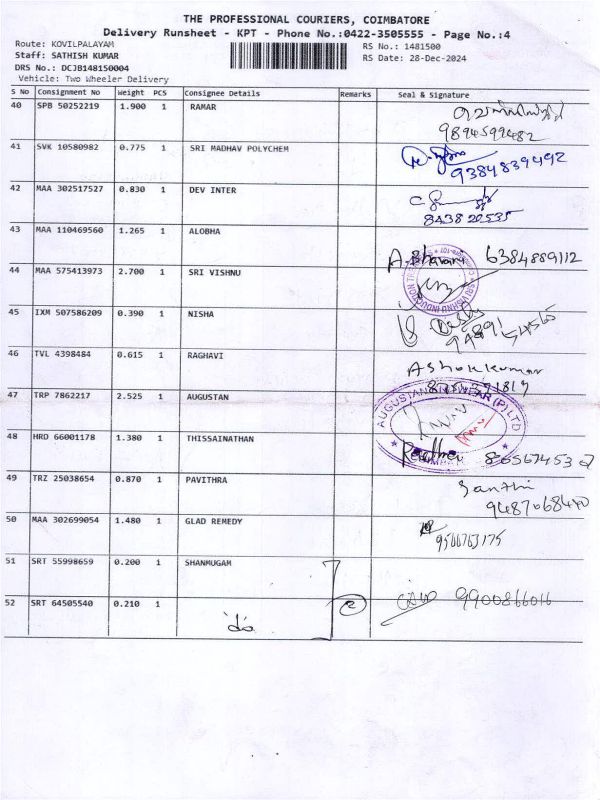 THE PROFESSIONAL COURIERS, COIMBATORE
Delivery Runsheet - KPT - Phone No.:0422-3505555 - Page No.:4
Route: KOVILPALAYAM RS No.: 1481500
Staff: SATHISH KUMAR RS Date: 28-Dec-2024
DRS No.: DCJB148150004
Vehicle: Two Wheeler Delivery
S No Consignment No Weight PCS Consignee Details Remarks Seal & Signature
40 SPB 50252219 1.900 1 RAMAR
9894599482
41 SVK 10580982 0.775 1 SRI MADHAV POLYCHEM
9384839492
42 MAA 302517527 0.830 1 DEV INTER
843820535
43 MAA 110469560 1.265 1 ALOBHA
A. Bhavani 6384889112
44 MAA 575413973 2.700 1 SRI VISHNU
45 IXM 507586209 0.390 1 NISHA
94891 54565
46 TVL 4398484 0.615 1 RAGHAVI
Ashokkumar
47 TRP 7862217 2.525 1 AUGUSTAN
AUGUSTAN KNITWEAR (P) LTD
48 HRD 66001178 1.380 1 THISSAINATHAN
49 TRZ 25038654 0.870 1 PAVITHRA
Santhi
9487068440
50 MAA 302699054 1.480 1 GLAD REMEDY
9500753175
51 SRT 55998659 0.200 1 SHANMUGAM
52 SRT 64505540 0.210 1 2 9900866016
do